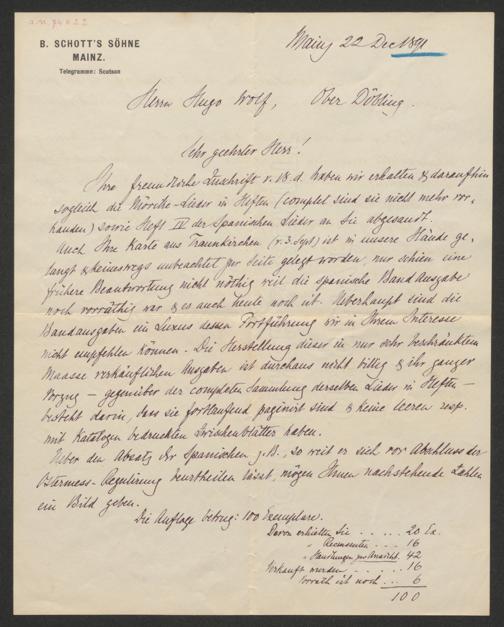 B. SCHOTT'S SÖHNE
MAINZ.
Telegramme: Scotson
Mainz 22 Dec 1891
Herrn Hugo Wolf, Ober Döbling.
Sehr geehrter Herr!
Ihre freundliche Zuschrift v. 18. d. haben wir erhalten & daraufhin
sogleich die Möricke-Lieder in Heften (complet sind sie nicht mehr vor-
handen) sowie Heft IV der Spanischen Lieder an Sie abgesandt.
Auch Ihre Karte aus Traunkirchen (v. 3. Sept) ist in unsere Hände ge-
langt & keineswegs unbeachtet zur Seite gelegt worden, nur schien eine
frühere Beantwortung nicht nöthig weil die spanische Band Ausgabe
noch vorräthig war & es auch heute noch ist. Ueberhaupt sind die
Bandausgaben ein Luxus dessen Fortführung wir in Ihrem Interesse
nicht empfehlen können. Die Herstellung dieser in nur sehr beschränktem
Maasse verkäuflichen Ausgaben ist durchaus nicht billig & ihr ganzer
Vorzug – gegenüber der completen Sammlung derselben Lieder in Heften –
besteht darin, dass sie fortlaufend paginirt sind & keine leeren resp.
mit Katalogen bedruckten Zwischenblätter haben.
Ueber den Absatz der Spanischen z. B., so weit er sich vor Abschluss der
Ostermess-Regulirung beurtheilen lässt, mögen Ihnen nachstehende Zahlen
ein Bild geben.
Die Auflage betrug: 100 Exemplare.
Davon erhielten Sie . . . . . 20 Ex.
" Recensenten . . . 16
" Handlungen zur Ansicht. 42
Verkauft wurden . . . . . 16
Vorrath ist noch . . . 6
100